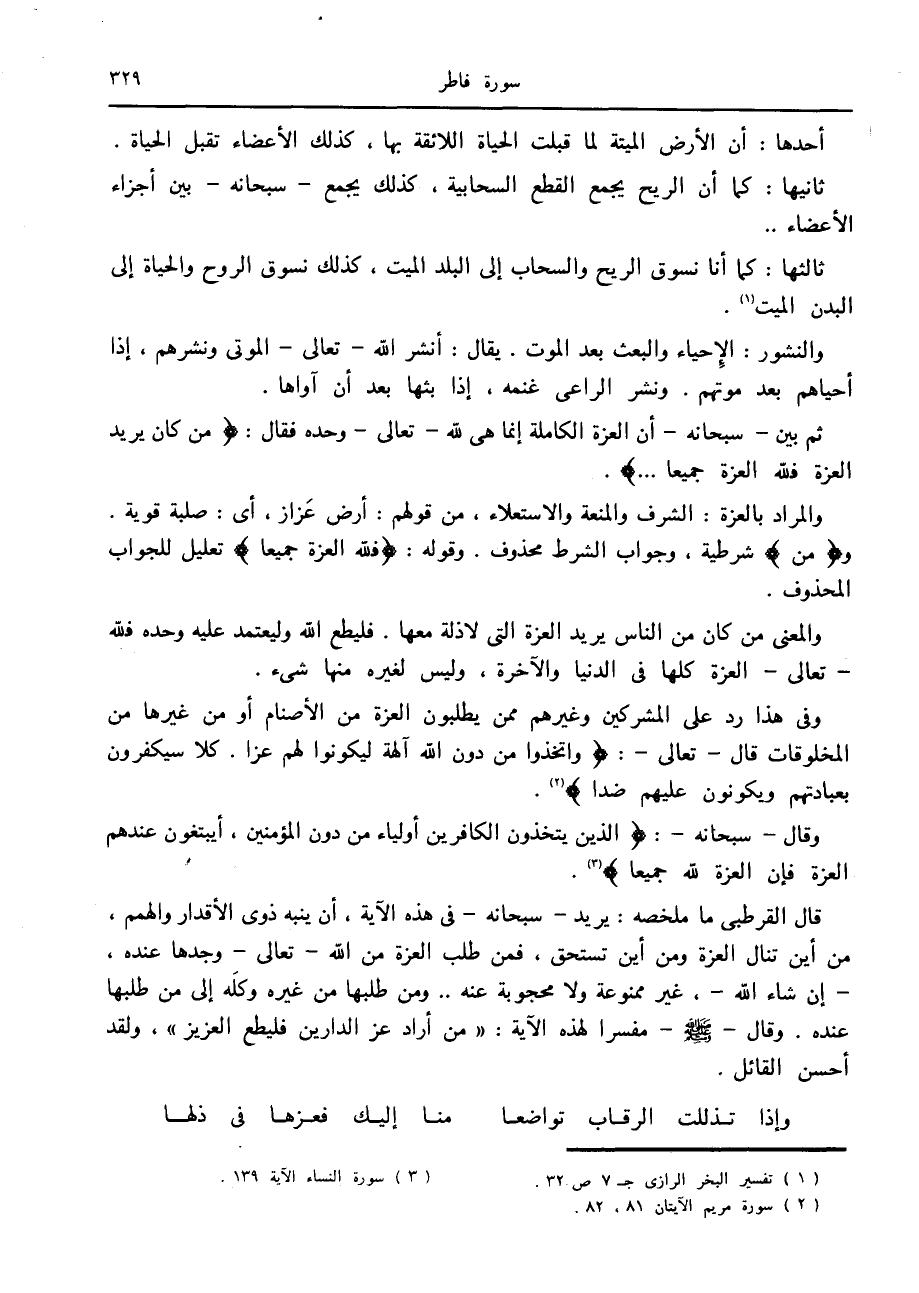 سورة فاطر ٣٢٩
أحدها : أن الأرض الميتة لما قبلت الحياة اللائقة بها ، كذلك الأعضاء تقبل الحياة .
ثانيها : كما أن الريح يجمع القطع السحابية ، كذلك يجمع – سبحانه – بين أجزاء
الأعضاء ..
ثالثها : كما أنا نسوق الريح والسحاب إلى البلد الميت ، كذلك نسوق الروح والحياة إلى
البدن الميت(١) .
والنشور : الإحياء والبعث بعد الموت . يقال : أنشر الله – تعالى – الموتى ونشرهم ، إذا
أحياهم بعد موتهم . ونشر الراعى غنمه ، إذا بثها بعد أن آواها .
ثم بين – سبحانه – أن العزة الكاملة إنما هى لله – تعالى – وحده فقال : ﴿ من كان يريد
العزة فلله العزة جميعا ...﴾ .
والمراد بالعزة : الشرف والمنعة والاستعلاء ، من قولهم : أرض عَزاز ، أى : صلبة قوية .
و﴿ من ﴾ شرطية ، وجواب الشرط محذوف . وقوله : ﴿فلله العزة جميعا ﴾ تعليل للجواب
المحذوف .
والمعنى من كان من الناس يريد العزة التى لاذلة معها . فليطع الله وليعتمد عليه وحده فلله
– تعالى – العزة كلها فى الدنيا والآخرة ، وليس لغيره منها شىء .
وفى هذا رد على المشركين وغيرهم ممن يطلبون العزة من الأصنام أو من غيرها من
المخلوقات قال – تعالى – : ﴿ واتخذوا من دون الله آلهة ليكونوا لهم عزا . كلا سيكفرون
بعبادتهم ويكونون عليهم ضدا ﴾(٢) .
وقال – سبحانه – : ﴿ الذين يتخذون الكافرين أولياء من دون المؤمنين ، أيبتغون عندهم
العزة فإن العزة لله جميعا ﴾(٣) .
قال القرطبى ما ملخصه : يريد – سبحانه – فى هذه الآية ، أن ينبه ذوى الأقدار والهمم ،
من أين تنال العزة ومن أين تستحق ، فمن طلب العزة من الله – تعالى – وجدها عنده ،
– إن شاء الله – ، غير ممنوعة ولا محجوبة عنه .. ومن طلبها من غيره وكلَه إلى من طلبها
عنده . وقال – ﷺ – مفسرا لهذه الآية : « من أراد عز الدارين فليطع العزيز » ، ولقد
أحسن القائل .
وإذا تـذللت الرقـاب تواضعـا منـا إليـك فعـزهـا فى ذلهـا
( ١ ) تفسير البخر الرازى جـ ٧ ص ٣٢ .
( ٢ ) سورة مريم الآيتان ٨١ ، ٨٢ .
( ٣ ) سورة النساء الآية ١٣٩ .